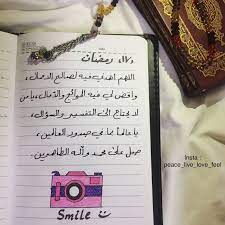 ١٧/ رمضان
اللهم اهدني فيه لصالح الاعمال،
واقض لي فيه الحوائج والآمال، يامن
لا يحتاج الى التفسير والسؤال،
ياعالماً بما في صدور العالمين،
صل على محمد وآله الطاهرين.
Smile
Insta :
peace_live_love_feel